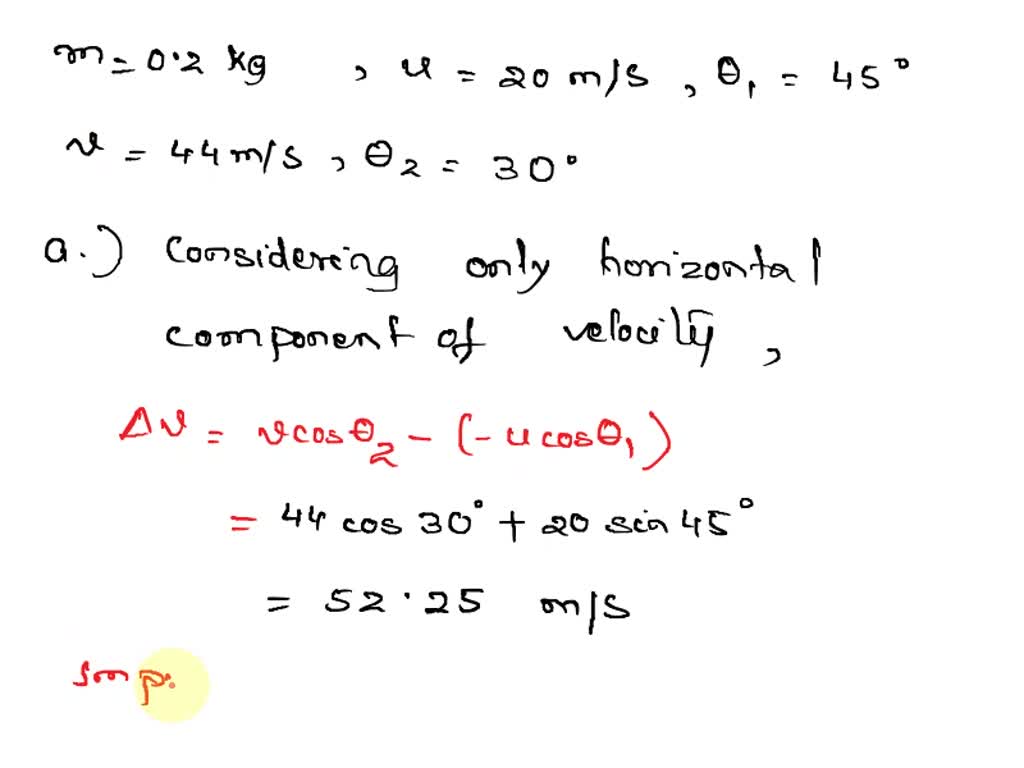 m = 0.2 kg , u = 20 m/s , θ₁ = 45°
v = 44 m/s , θ₂ = 30°
a.) Considering only horizontal
component of velocity ,
Δv = v cosθ₂ - (- u cosθ₁)
= 44 cos 30° + 20 sin 45°
= 52.25 m/s
Imp.